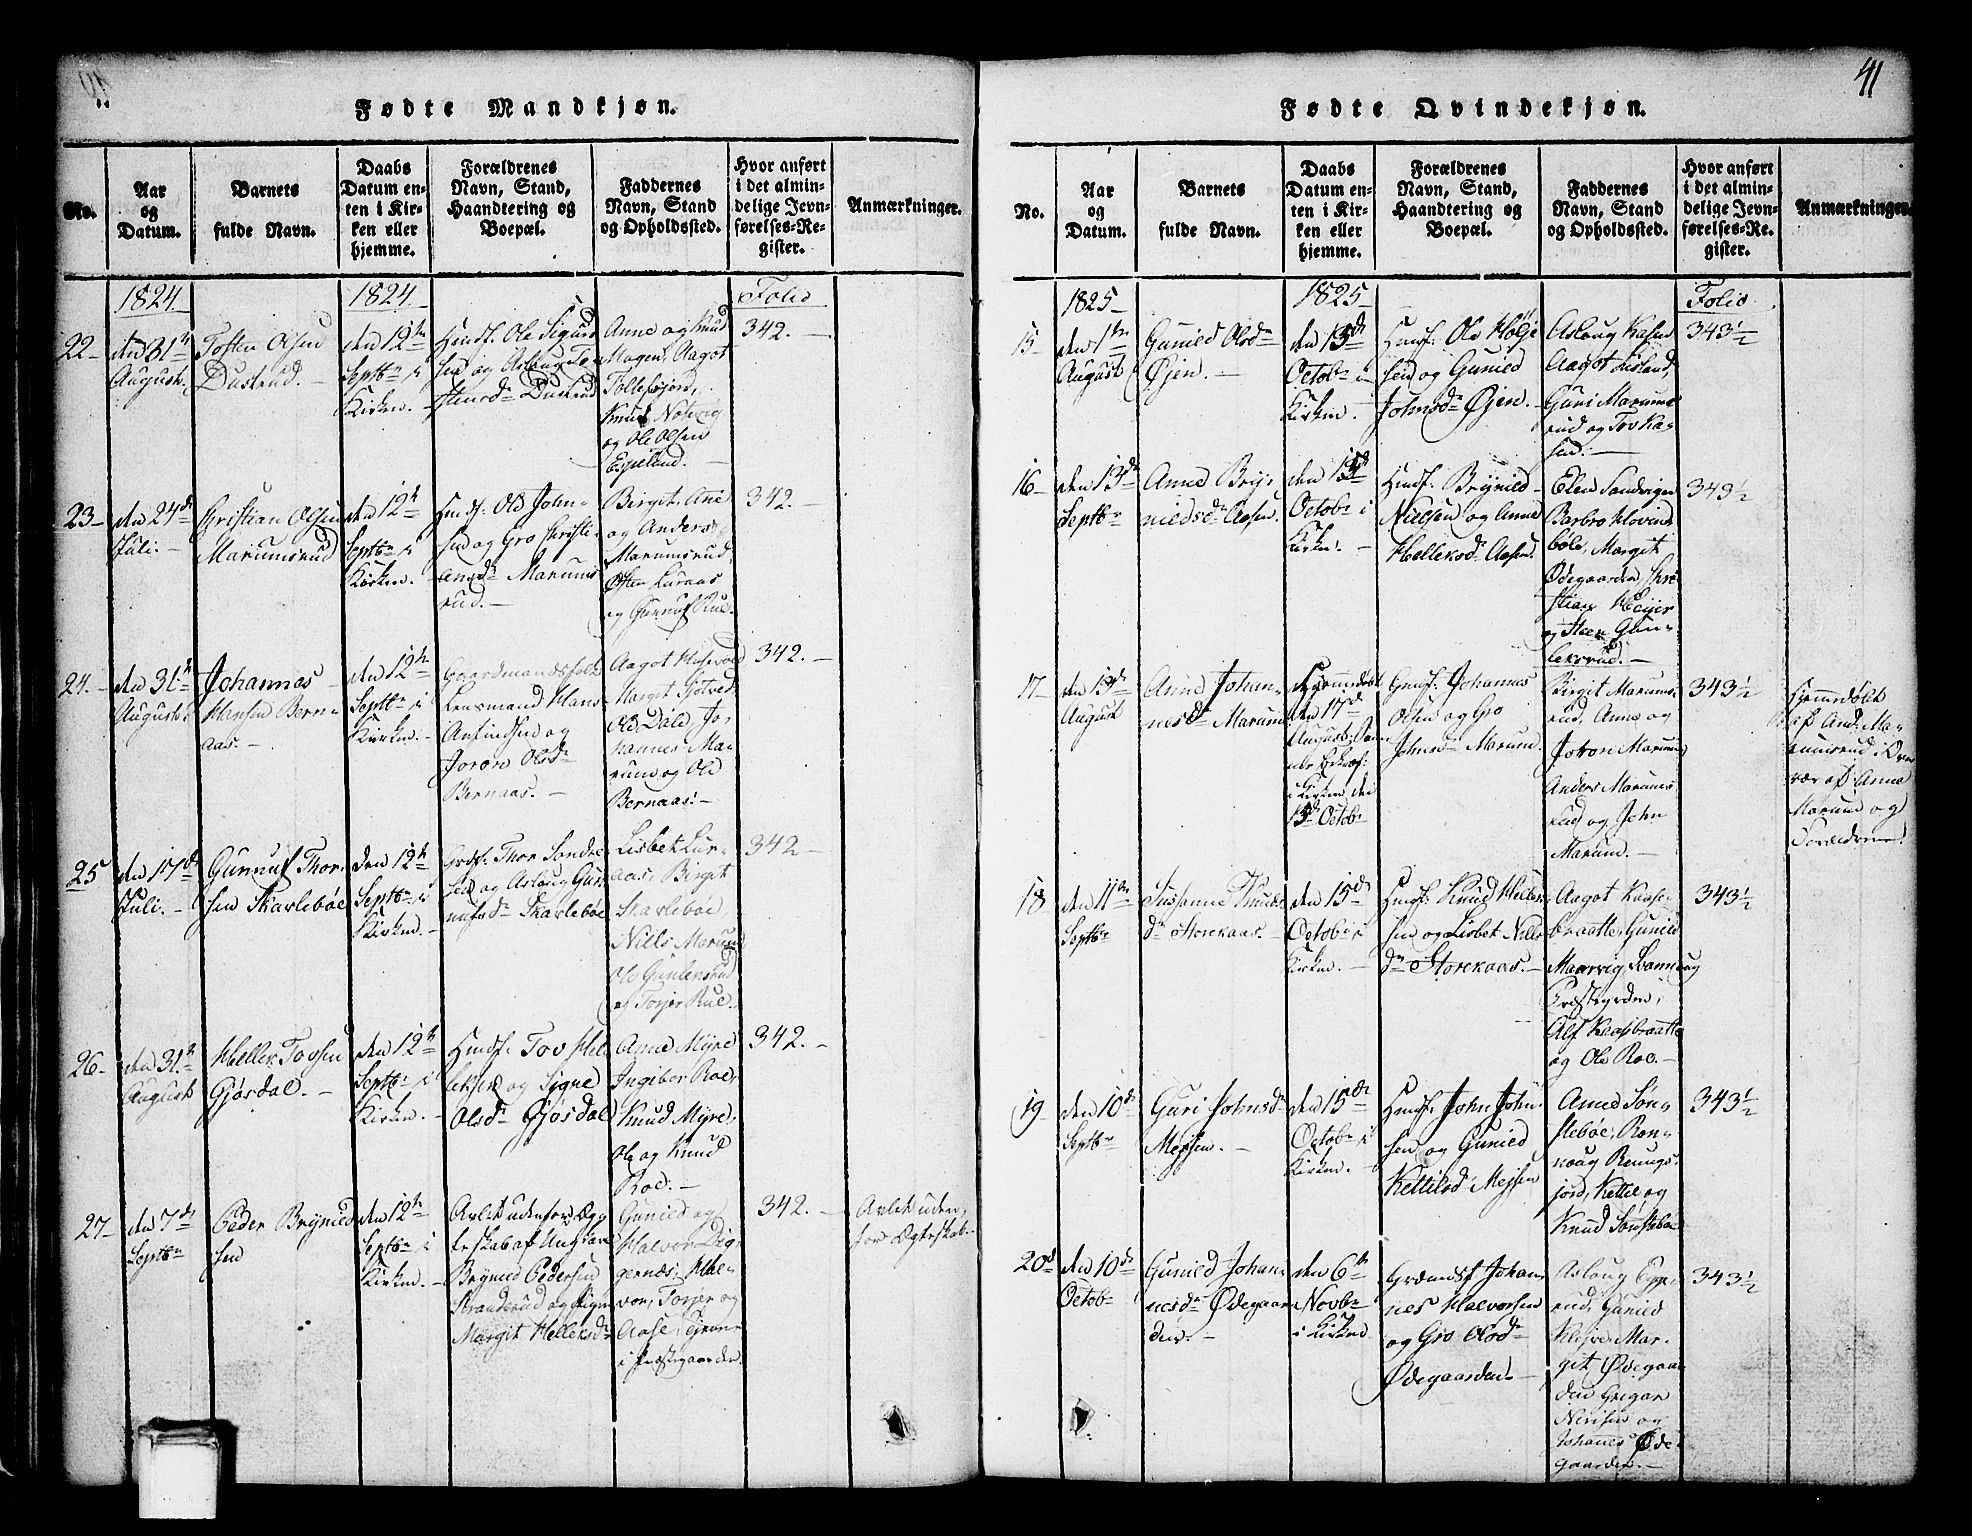 Fødte Mandkjøn.
No.
Aar
og
Datum.
Barnets
fulde Navn.
Daabs
Datum en-
ten i Kir-
ken eller
hjemme.
Forældrenes
Navn, Stand,
Haandtering og
Boepæl.
Faddernes
Navn, Stand
og Opholdssted.
Hvor anført
i det almin-
delige Jevn-
førelses-Re-
gister.
Anmærkninger.
1824
1824
Folio
22
den 31te
August
Tosten Olsen
Dustrud.
den 12te
Septbr i
Kirken.
Huusf. Ole Sigurd
sen og Aslaug To
stensdr Dustrud
Anne og Knud
Mogen, Aagot
Tollefsjord,
Knud Notevig
og Ole Olsen
Espelund.
342.
23
den 24de
Juli.
Christian Olsen
Marumsrud
den 12te
Septbr i
Kirken.
Huusf. Ole John-
sen og Gro Christi-
ansdr Marums
rud.
Birgit, Ane
og Anders
Marumsrud,
Østen Luraas
og Gunnuf Rue.
342.
24.
den 31te
August
Johannes
Hansen Bern-
aas.
den 12te
Septbr i
Kirken.
Gaardmandsfolk
Lensmand Hans
Anfindsen og
Joron Olsdr
Bernaas.
Aagot Husevold
Margit
Ole Dale, Jo-
hannes Ma-
rum og Ole
Bernaas.
342.
25
den 17de
Juli.
Gunnuf Thor-
sen Skarlebøe
den 12te
Septbr i
Kirken.
Grdf. Thor Sondre
sen og Aslaug Gun
nufsdr Skarlebøe
Lisbet Lur-
aas, Birgit
Skarlebøe,
Niels Marum
Ole Gunleksrud
og Torjer Rue.
342
26
den 31te
August
Hellek Tovsen
Gjøsdal.
den 12te
Septbr i
Kirken.
Huusf. Tov Hel
leksen og Signe
Olsdr Gjøsdal
Anne Myre
Ingibor Roe,
Knud Myre,
Ole og Knud
Roe.
342.
27
den 7de
Septbr
Peder Brynied
sen
den 12te
Septbr i
Kirken.
Avlet udenfor Æg
teskab af Ungkarl
Brynied Pedersen
Stranderud og Pigen
Margit Helleksdr
Gunied og
Halvor Dig-
gernæs, Hal-
vor, Torjer og
Aase,
i Præstegaarden.
342.
Avlet uden
for Ægteskab.
41
Fødte Qvindekjøn.
No.
Aar
og
Datum.
Barnets
fulde Navn.
Daabs
Datum en-
ten i Kir-
ken eller
hjemme.
Forældrenes
Navn, Stand,
Haandtering og
Boepæl.
Faddernes
Navn, Stand
og Opholdssted.
Hvor anført
i det almin-
delige Jevn-
førelses-Re-
gister.
Anmærkninger.
1825
1825
Folio
15
den 1te
August
Gunied Olsdr
Øjen.
den 15de
Octobr i
Kirken.
Huusf. Ole Høljе
sen og Gunied
Johnsdr Øjen.
Aslaug Kasen
Aagot
Guri Marums
rud og Tov Ka-
sen.
343½
16
den 13de
Septbr
Anne Bry-
niedsdr Aasen.
den 15de
Octobr i
Kirken.
Huusf. Brynied
Nielsen og Anne
Helleksdr Aasen.
Elen Sandvigen
Barbro Hovin
bøle, Margit
Ødegaarden, Chri
stian Heijer
og Steen Gun-
leksrud.
343½
17
den 13de
August
Anne Johan-
nesdr Marum
Hjemmedøbt
den 17de
August,
i Kirken den
15de Octobr
Huusf. Johannes
Olsen og Gro
Johnsdr Marum.
Birgit Marums
rud, Anne og
Joron Marum,
Anders Marums
rud og John
Marum.
343½
Hjemmedøbt
af And. Ma-
rumsrud i Over
vær af Anne
Marum og
Forældrene.
18
den 11te
Septbr
Susanne Knuds
dr Storekaas.
den 15de
Octobr i
Kirken.
Huusf. Knud Hellek
sen og Lisbet Niels
dr Storekaas.
Aagot Kaase-
braatte, Gunied
Maarvig, Rannoug
Præstegrden,
Alf Kaasbraatte
og Ole Roe.
343½
19
den 10de
Septbr
Guri Johnsdr
Mejsen.
den 15de
Octobr i
Kirken.
Huusf. John John
sen og Gunied
Kettilsdr Mejsen
Anne Søn-
stebøe, Ron-
noug Reungs-
jord, Kettil og
Knud Sønstebøe
343½
20
den 10de
Octobr
Gunied Johan-
nesdr Ødegaar
den.
den 6te
Novbr
i Kirken
Grdmdsf Johan
nes Halvorsen
og Gro Olsdr
Ødegaarden.
Aslaug
rud, Gunied
Mar-
git Ødegaar
den, Gregar
Nirisen og
Johannes Øde-
gaarden.
343½